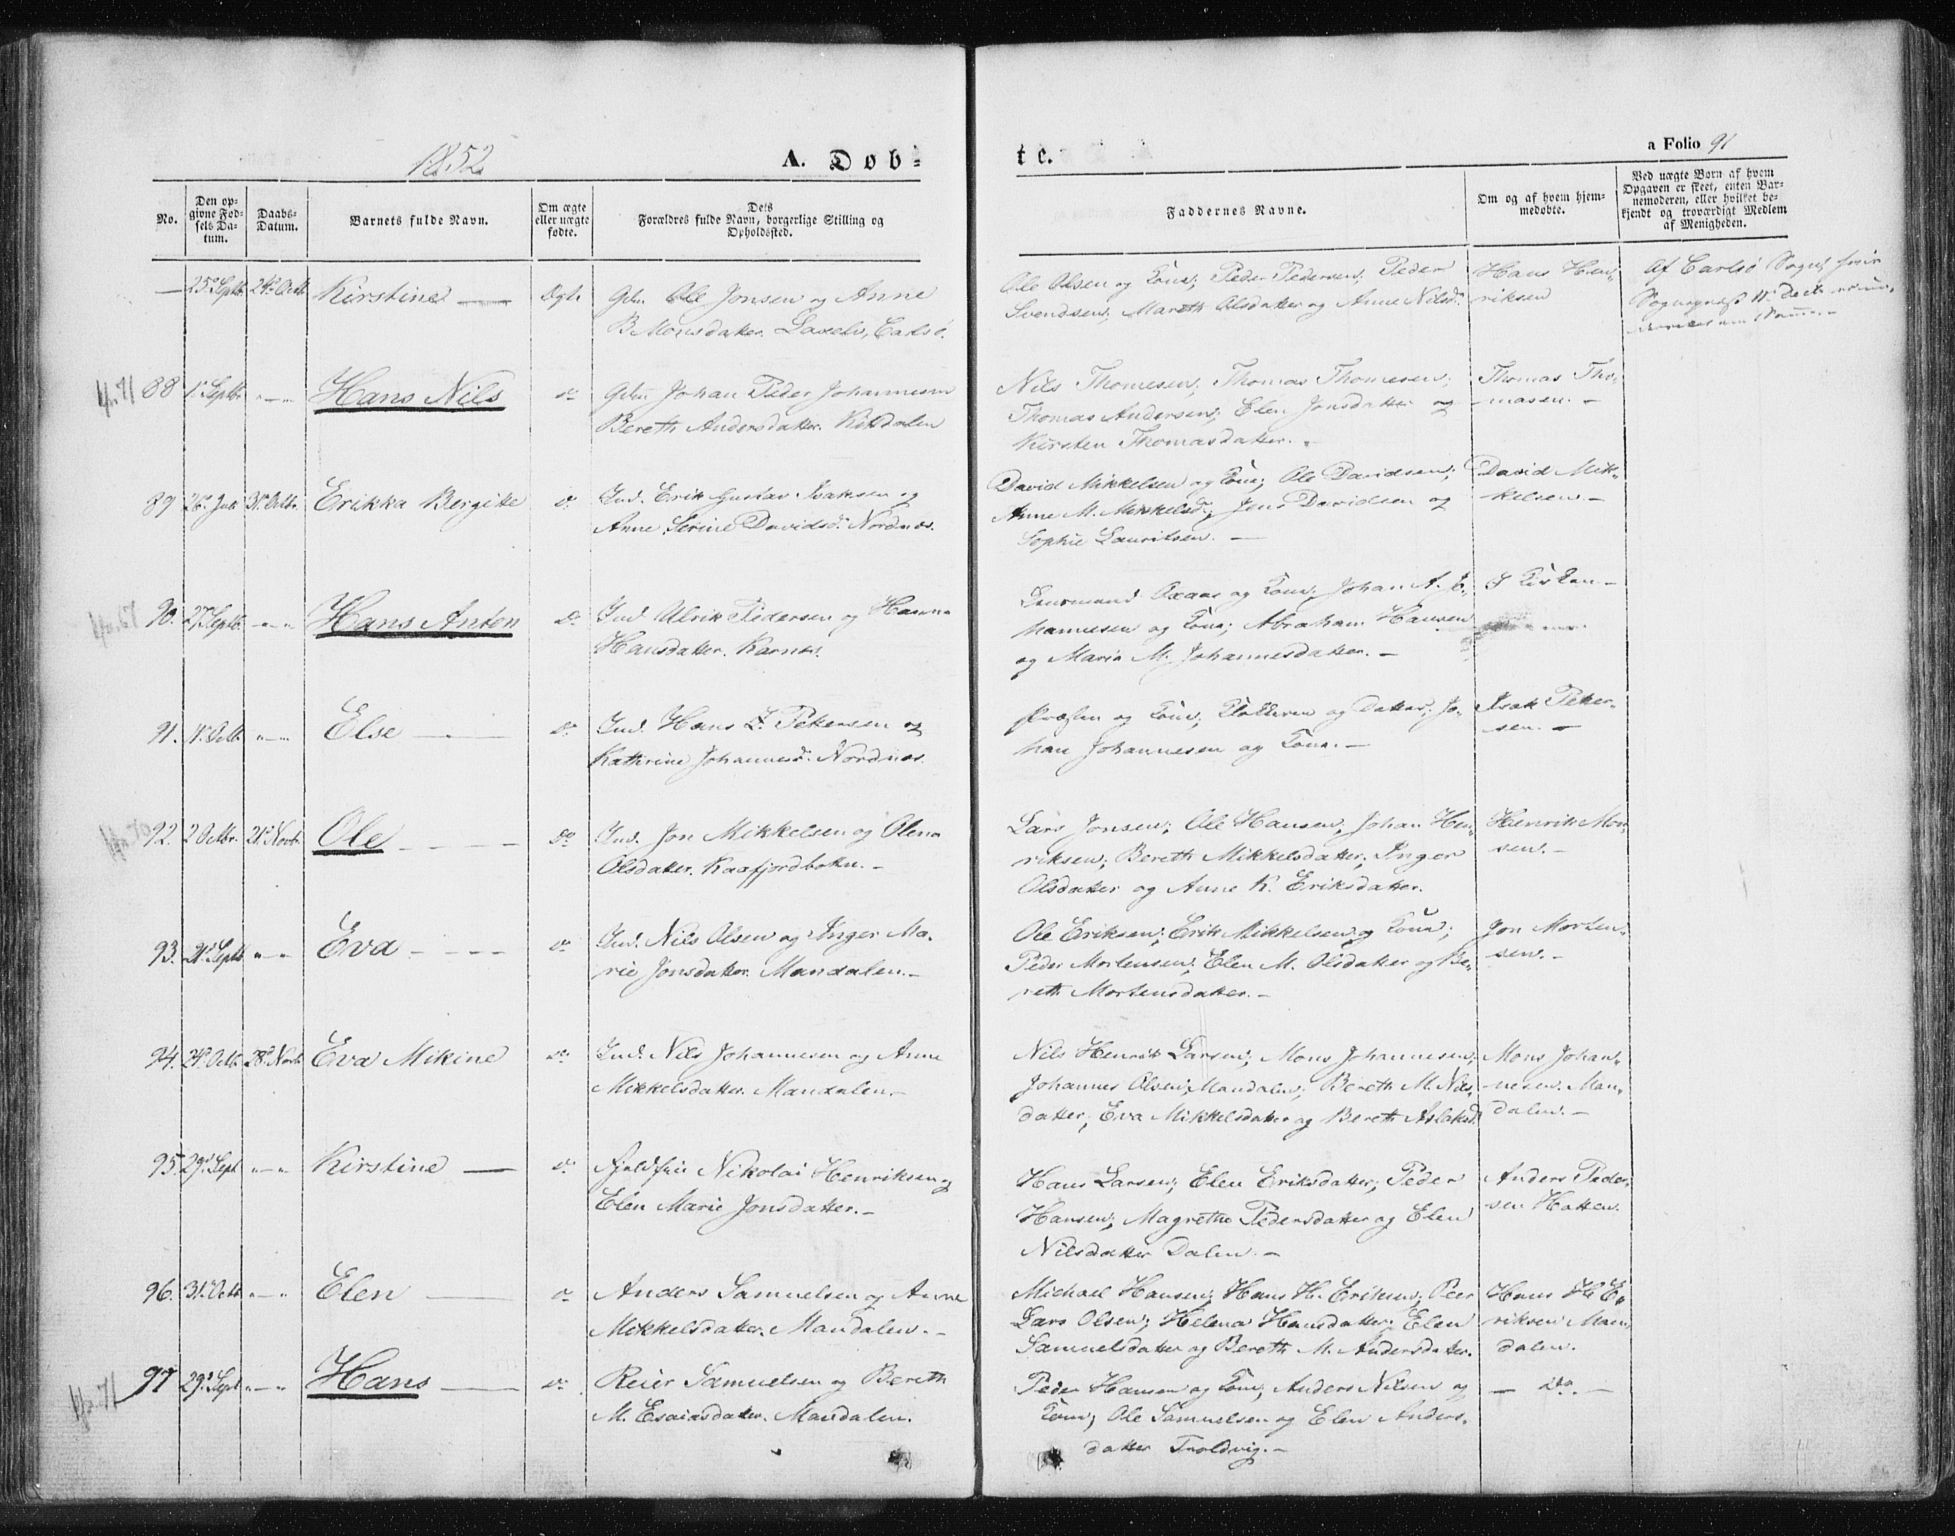 1852.
A. Døb-
tc.
a Folio 91
No.
Den op-
givne Fød-
sels Da-
tum.
Daabs-
Datum.
Barnets fulde Navn.
Om ægte
eller uægte
fødte.
Dets
Forældres fulde Navn, borgerlige Stilling og
Opholdssted.
Faddernes Navne.
Om og af hvem hjem-
medøbte.
Ved uægte Børn af hvem
Opgaven er skeet, enten Bar-
nemoderen, eller hvilket be-
kjendt og troværdigt Medlem
af Menigheden.
— 25de Septb. 24de Octb. Kirstine — Ægte
Ole Jonsen og Anne
B. Monsdatter.
Ole Olsen og Kone; Peder Pedersen; Peder
Svendsen; Mareth Olsdatter og Anne Nilsd.
Hans Hen-
riksen
Af Carlsø Sogn
88 1ste Septbr. „—„ Hans Nils do
Johan Peder Johannesen
Bereth Andersdatter. Kitdalen
Nils Thomesen; Thomas Thomesen;
Thomas Andersen; Elen Jonsdatter og
Kirsten Thomasdatter. -
Thomas Tho-
masen. -
89 26de 31te Octbr. Erikka Bergitte do
Ind. Erik Gustav Isaksen og
Anne Serine Davidsd. Nordnæs.
David Mikkelsen og Kone; Ole Davidsen;
Anne M. Mikkelsd.; Jens Davidsen og
Sophie Lauritsen. —
David Mik-
kelsen -
90. 27 Septb. „—„ Hans Anton do
Ind. Ulrik Pedersen og Hanna
Hansdatter. Karnæs.
og Kone; Johan A. Jo-
hannesen og Kone; Abraham Hansen
og Maria M. Johannesdatter. -
I Kirken -
91. 1ste Octb. „—„ Else — do
Ind. Hans P. Petersen og
Kathrine Johannesd. Nordnæs.
Præsten og Kone; Klokkeren og Datter; Jo-
han Johannesen og Kone. -
Isak Peter-
sen. -
92. 2 Octbr. 21de Novbr. Ole - - - do
Ind. Jon Mikkelsen og Olena
Olsdatter. Kaafjordbotn. -
Lars Jonsen; Ole Hansen; Johan Hen-
riksen; Bereth Mikkelsdatter; Inger
Olsdatter og Anne K. Eriksdatter.
Henrik Mon-
sen. -
93. 21de Septb. „—„ Eva - - - - do
Ind. Nils Olsen og Inger Ma-
rie Jonsdatter. Mandalen. -
Ole Eriksen; Erik Mikkelsen og Kone;
Peder Mortensen; Elen M. Olsdatter og Be-
reth Mortensdatter. -
Jon Morten-
sen. -
94. 24de Octb. 28de Novb. Eva Mikine do
Ind. Nils Johannesen og Anne
Mikkelsdatter. Mandalen. -
Nils Henrik Larsen; Mons Johannesen;
Johannes Olsen; Mandalen; Bereth M. Nils-
datter; Eva Mikkelsdatter og Bereth Aslaksd.
Mons Johan-
nesen. Man-
dalen. -
95. 29de Sept „—„ Kirstine — do
Nikolai Henriksen og
Elen Marie Jonsdatter. -
Hans Larsen; Elen Eriksdatter; Peder
Hansen; Magrethe Pedersdatter og Elen
Nilsdatter Dalen. -
Anders Peder-
sen Hatten.
96. 31te Octb. „—„ Elen — do
Anders Samuelsen og Anne
Mikkelsdatter. Mandalen. -
Michael Hansen; Hans H. Eriksen; Peer
Lars Olsen; Helena Hansdatter; Elen
Samuelsdatter og Bereth M. Andersdatter.
Hans H. E-
riksen Man-
dalen.
97 29de Sept „—„ Hans — do
Reier Samuelsen og Bereth
M. Esaiasdatter. Mandalen.
Peder Hansen og Kone; Anders Nilsen og
Kone; Ole Samuelsen og Elen Anders-
datter Troldvig. -
— do. —